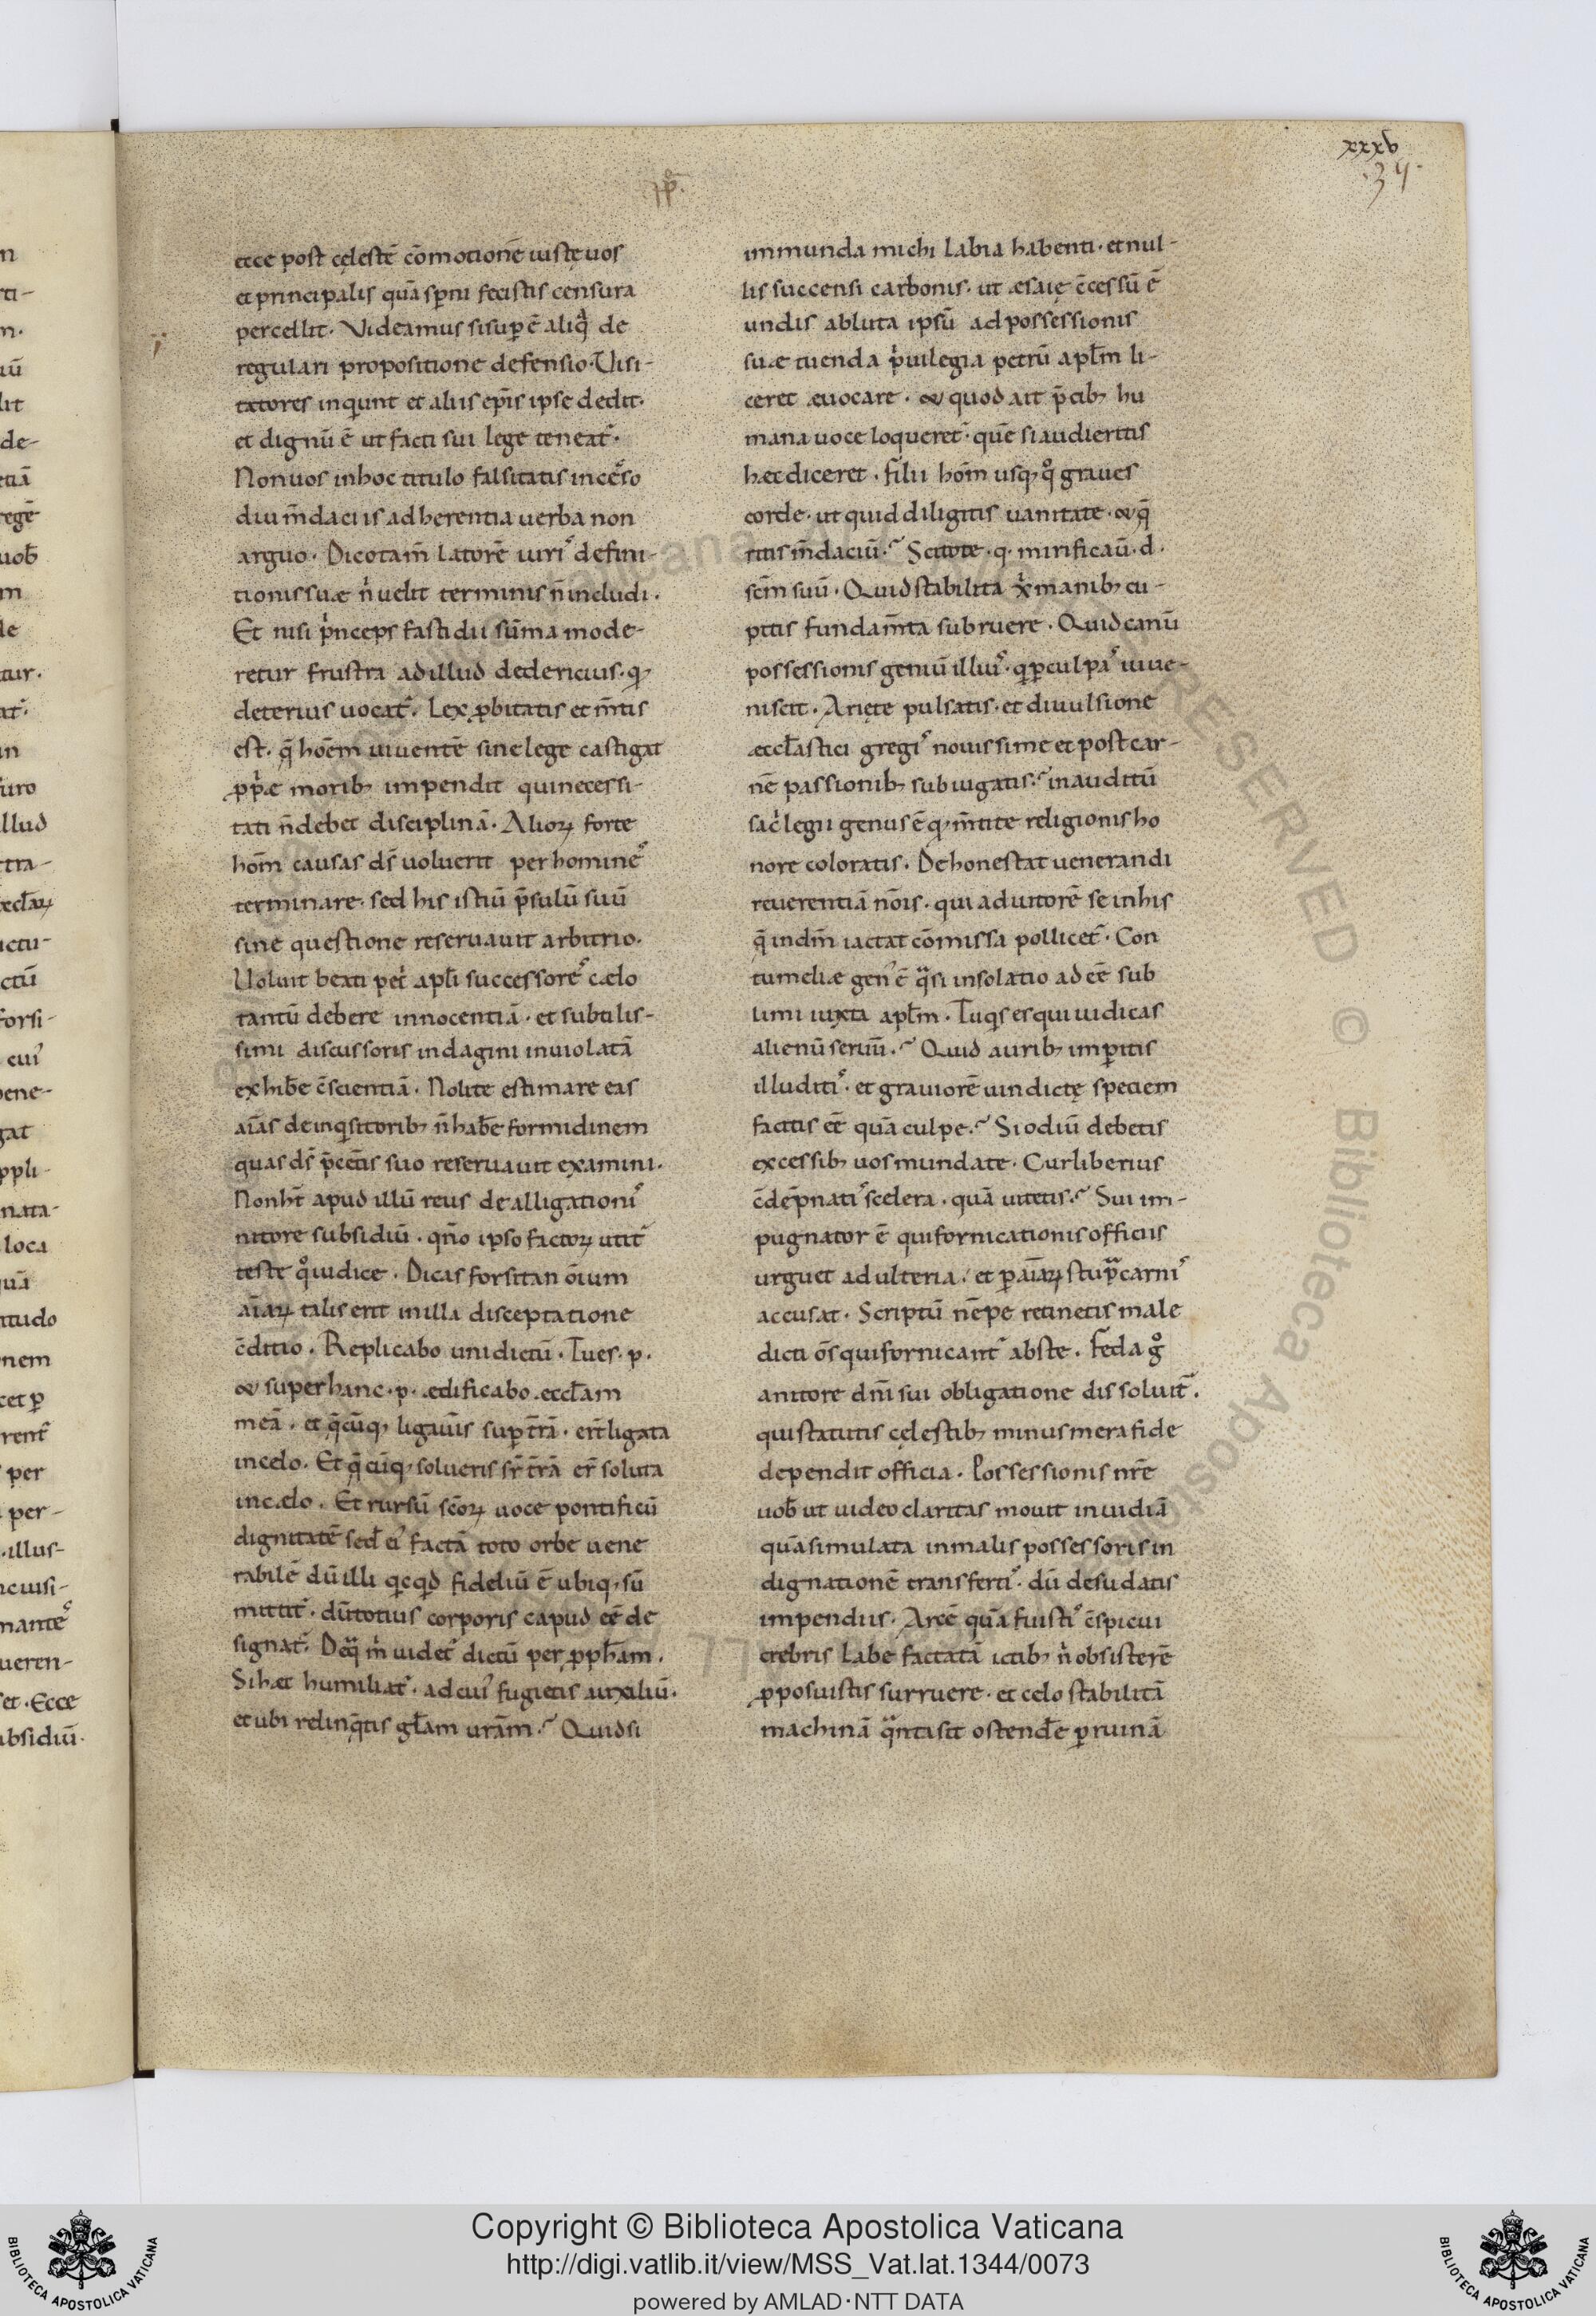 xxxv
34
ecce post cęlestē cōmotionē iustę uos
et principalis quā sperni fecistis censura
percellit. Videamus si sup ē aliqͥd de
regulari propositione defensio. Visi-
tatores inqiunt et aliis ep̄is ipse dedit.
et dignū ē ut facti sui lege teneat᷑.
Non uos in hoc titulo falsitatis incesso
diu m̄daciis adherentia uerba non
arguo. Dico tam̄ latorē iuris defini-
tionis suæ n̄ uelit terminis n̄ includi.
Et nisi pͥnceps fastidii sūma mode-
retur frustra ad illud dedericius. q
deterius uocat᷑. Lex ꝓbitatis et m̄tis
est. q̄ hoēm uiuentē sine lege castigat
ꝓpͥæ morib; impendit qui necessi-
tati n̄ debet disciplinā. Alioꝝ forte
hom̄ causas ds̄ uoluerit per homines
terminare. sed his istiū p̄sulū suū
sine questione reseruauit arbitrio.
Voluit beati petͥ apl̄i successores cælo
tantū debere innocentiā. et subtilis-
simi discussoris indagini inuiolatā
exhibe c̄scientiā. Nolite estimare eas
aīas de inqͥsitorib; n̄ habe formidinem
quas ds̄ p̄ cet̄is suo reseruauit examini.
Non ht̄ apud illū reus de alligationis
nitore subsidiū. qn̄o ipso factoꝝ utit᷑
teste qͦ iudice. Dicas forsitan oīum
aīaꝝ talis erit in illa disceptatione
c̄ditio. Replicabo uni dictū. Tu es. p.
& super hanc. p. ædificabo æccl̄am
meā. et q̄cūq; ligau̅is sup tr̄ā. erit̄ ligata
in celo. Et q̄ cūq; solueris sr̄ tr̄ā er̄ soluta
in cælo. Et rursū sc̄oꝝ uoce pontificū
dignitatē sed̄ eiꝰ factā toto orbe uene
rabilē dū illi qͥcqͥd fideliū ē ubiq; sū
mittit᷑. dū totius corporis capud eē de
signat᷑. De qͣ m̄ uidet᷑ dictū per ꝓph̄am.
Si hæc humiliat᷑. ad cuiꝰ fugietis auxiliū.
et ubi relinq̄tis gl̄am ur̄am. Quid si
immunda michi labia habenti. et nul-
lis succensi carbonis. ut æsaię c̄cessū ē
undis abluta ipsū ad possessionis
suæ tuenda pͥuilegia petrū apl̄m li-
ceret æuocare. & quod ait p̄cib; hu
mana uoce loqueret᷑. quē si audieritis
hæc diceret. Filii hom̄ usq; qͦ graues
corde. ut quid diligitis uanitate. & q̄
ritis m̄daciū. Scitote. q. mirificau̅. d.
scm̄ suū. Quid stabilita xͥ manib; cu-
pitis fundam̄ta subruere. Quid canū
possessionis geniū illius. q p culpas iuue-
niscit. Ariete pulsatis. et diuulsione
æccl̄astici gregis nouissime et post car-
nē passionib; subiugatis. inauditū
sacͥlegii genus ē q; m̄tite religionis ho
nore coloratis. Dehonestat uenerandi
reuerentiā nōis. qui adiutorē se in his
q̄ indm̄ iactat cōmissa pollicet᷑. Con
tumeliæ genꝰ ē qͣsi insolatio ad eē sub
limi iuxta apl̄m. Tu qͥs es qui iudicas
alienū seruū. Quid aurib; impitis
illuditis. et grauiorē uindictę speciem
factis eē quā culpe. Si odiū debetis
excessib; uos mundate. Cur liberius
c̄dep̄natis scelera. quā uitetis. Sui im-
pugnator ē qui fornicationis officiis
urguet adulteria. et p aīaꝝ stupͣ carnis
accusat. Scriptū nēpe retinetis male
dicti ōs qui fornicant᷑ abste. Feda gͦ
anitore dn̄i sui obligatione dissoluit᷑.
qui statutis cęlestib; minus mera fide
dependit officia. Possessionis nr̄e
uob̄ ut uideo claritas mouit inuidiā
quā simulata in malis possessoris in
dignationē transfertis. dū desudatis
impendiis. Arcē quā fuistis c̄spicui
crebris labe factatā ictib; n̄ obsisterē
ꝓposuistis surruere. et celo stabilitā
machinā qͣnta sit ostendē p ruinā
Copyright © Biblioteca Apostolica Vaticana
http://digi.vatlib.it/view/MSS_Vat.lat.1344/0073
powered by AMLAD·NTT DATA